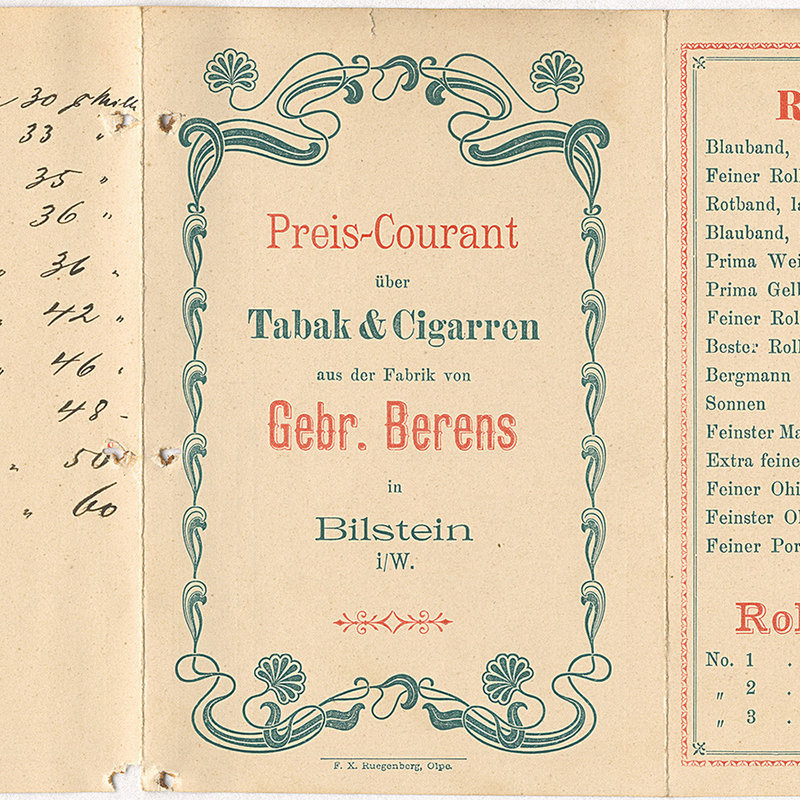 30 p Mille
33 "
35 "
36 "
" 36 "
" 42 "
" 46 "
48 -
" 50
" 60
Preis-Courant
über
Tabak & Cigarren
aus der Fabrik von
Gebr. Berens
in
Bilstein
i/W.
F. X. Ruegenberg, Olpe.
R
Blauband,
Feiner Roll
Rotband, la
Blauband,
Prima Wei
Prima Gelb
Feiner Rol
Bester Roll
Bergmann
Sonnen
Feinster Ma
Extra feine
Feiner Ohi
Feinster O
Feiner Por
Rol
No. 1 .
" 2 .
" 3 .